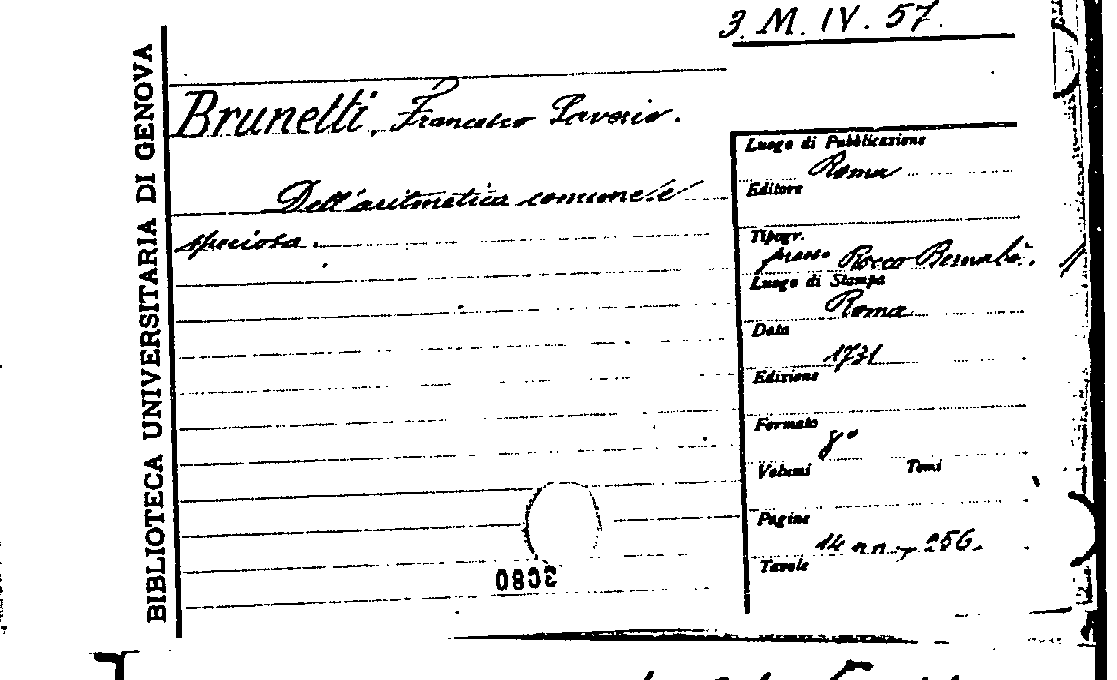 3. M. IV. 57.
BIBLIOTECA UNIVERSITARIA DI GENOVA
Brunetti, Francesco Saverio.
Dell'aritmetica comune e
speciosa.
Luogo di Pubblicazione
Roma
Editore
Tipogr.
presso Rocco Bernabò.
Luogo di Stampa
Roma
Data
1731
Edizione
Formato
8°
Volumi Tomi
Pagine
14 nn., 256.
Tavole